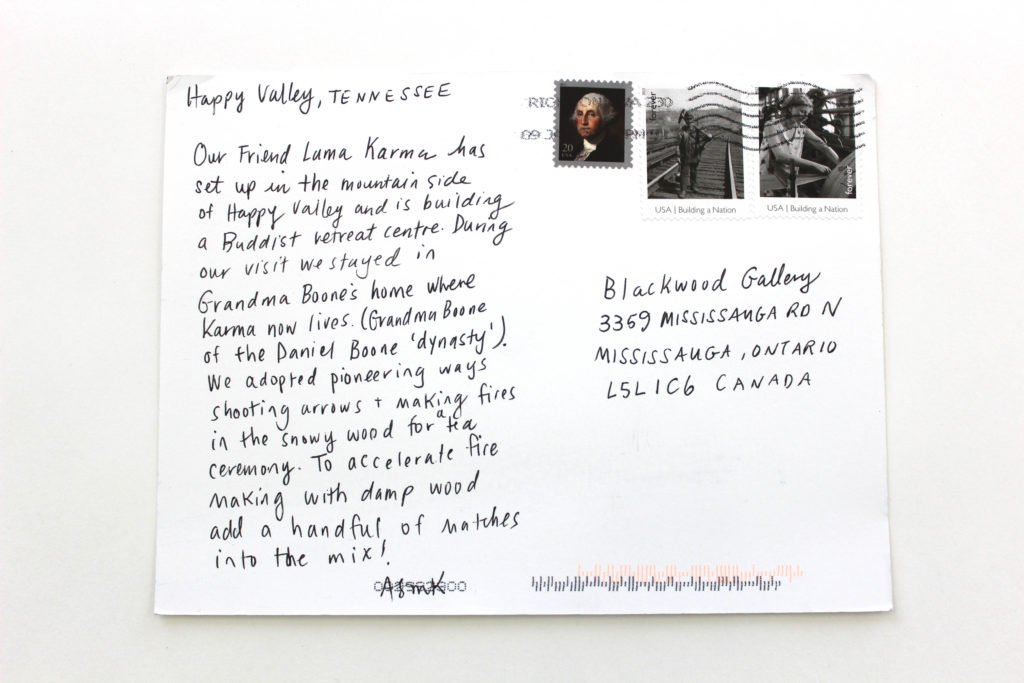 Happy Valley, TENNESSEE
Our Friend Lama Karma has
set up in the mountain side
of Happy Valley and is building
a Buddist retreat centre. During
our visit we stayed in
Grandma Boone's home where
Karma now lives. (Grandma Boone
of the Daniel Boone 'dynasty').
We adopted pioneering ways
shooting arrows + making fires
in the snowy wood for a tea
ceremony. To accelerate fire
making with damp wood
add a handful of matches
into the mix!
20
USA
forever
USA | Building a Nation
forever
USA | Building a Nation
Blackwood Gallery
3359 MISSISSAUGA RD N
MISSISSAUGA, ONTARIO
L5L 1C6 CANADA